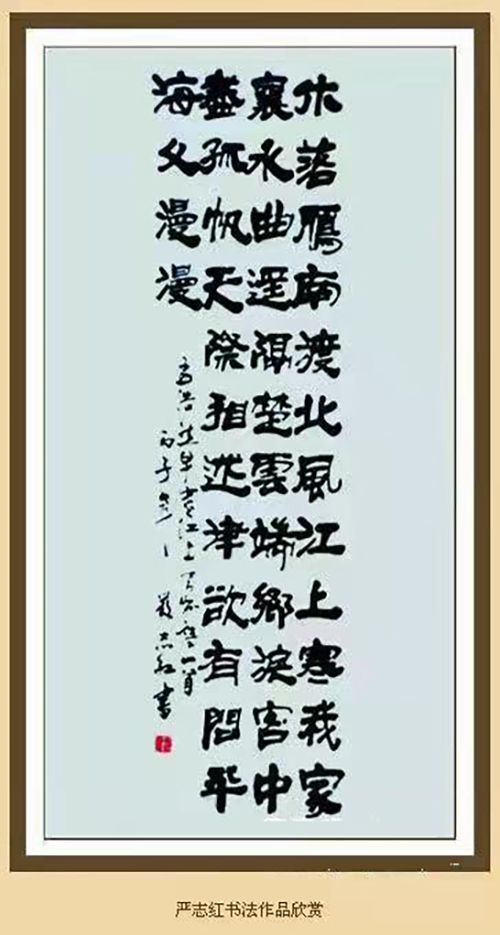 木落鴈南渡北風江上寒我家
襄水曲遥隔楚雲端鄉淚客中
盡孤帆天際相迷津欲有問平
海夕漫漫
孟浩然早寒江上有懷一首
丙子嚴志红書
严志红书法作品欣赏